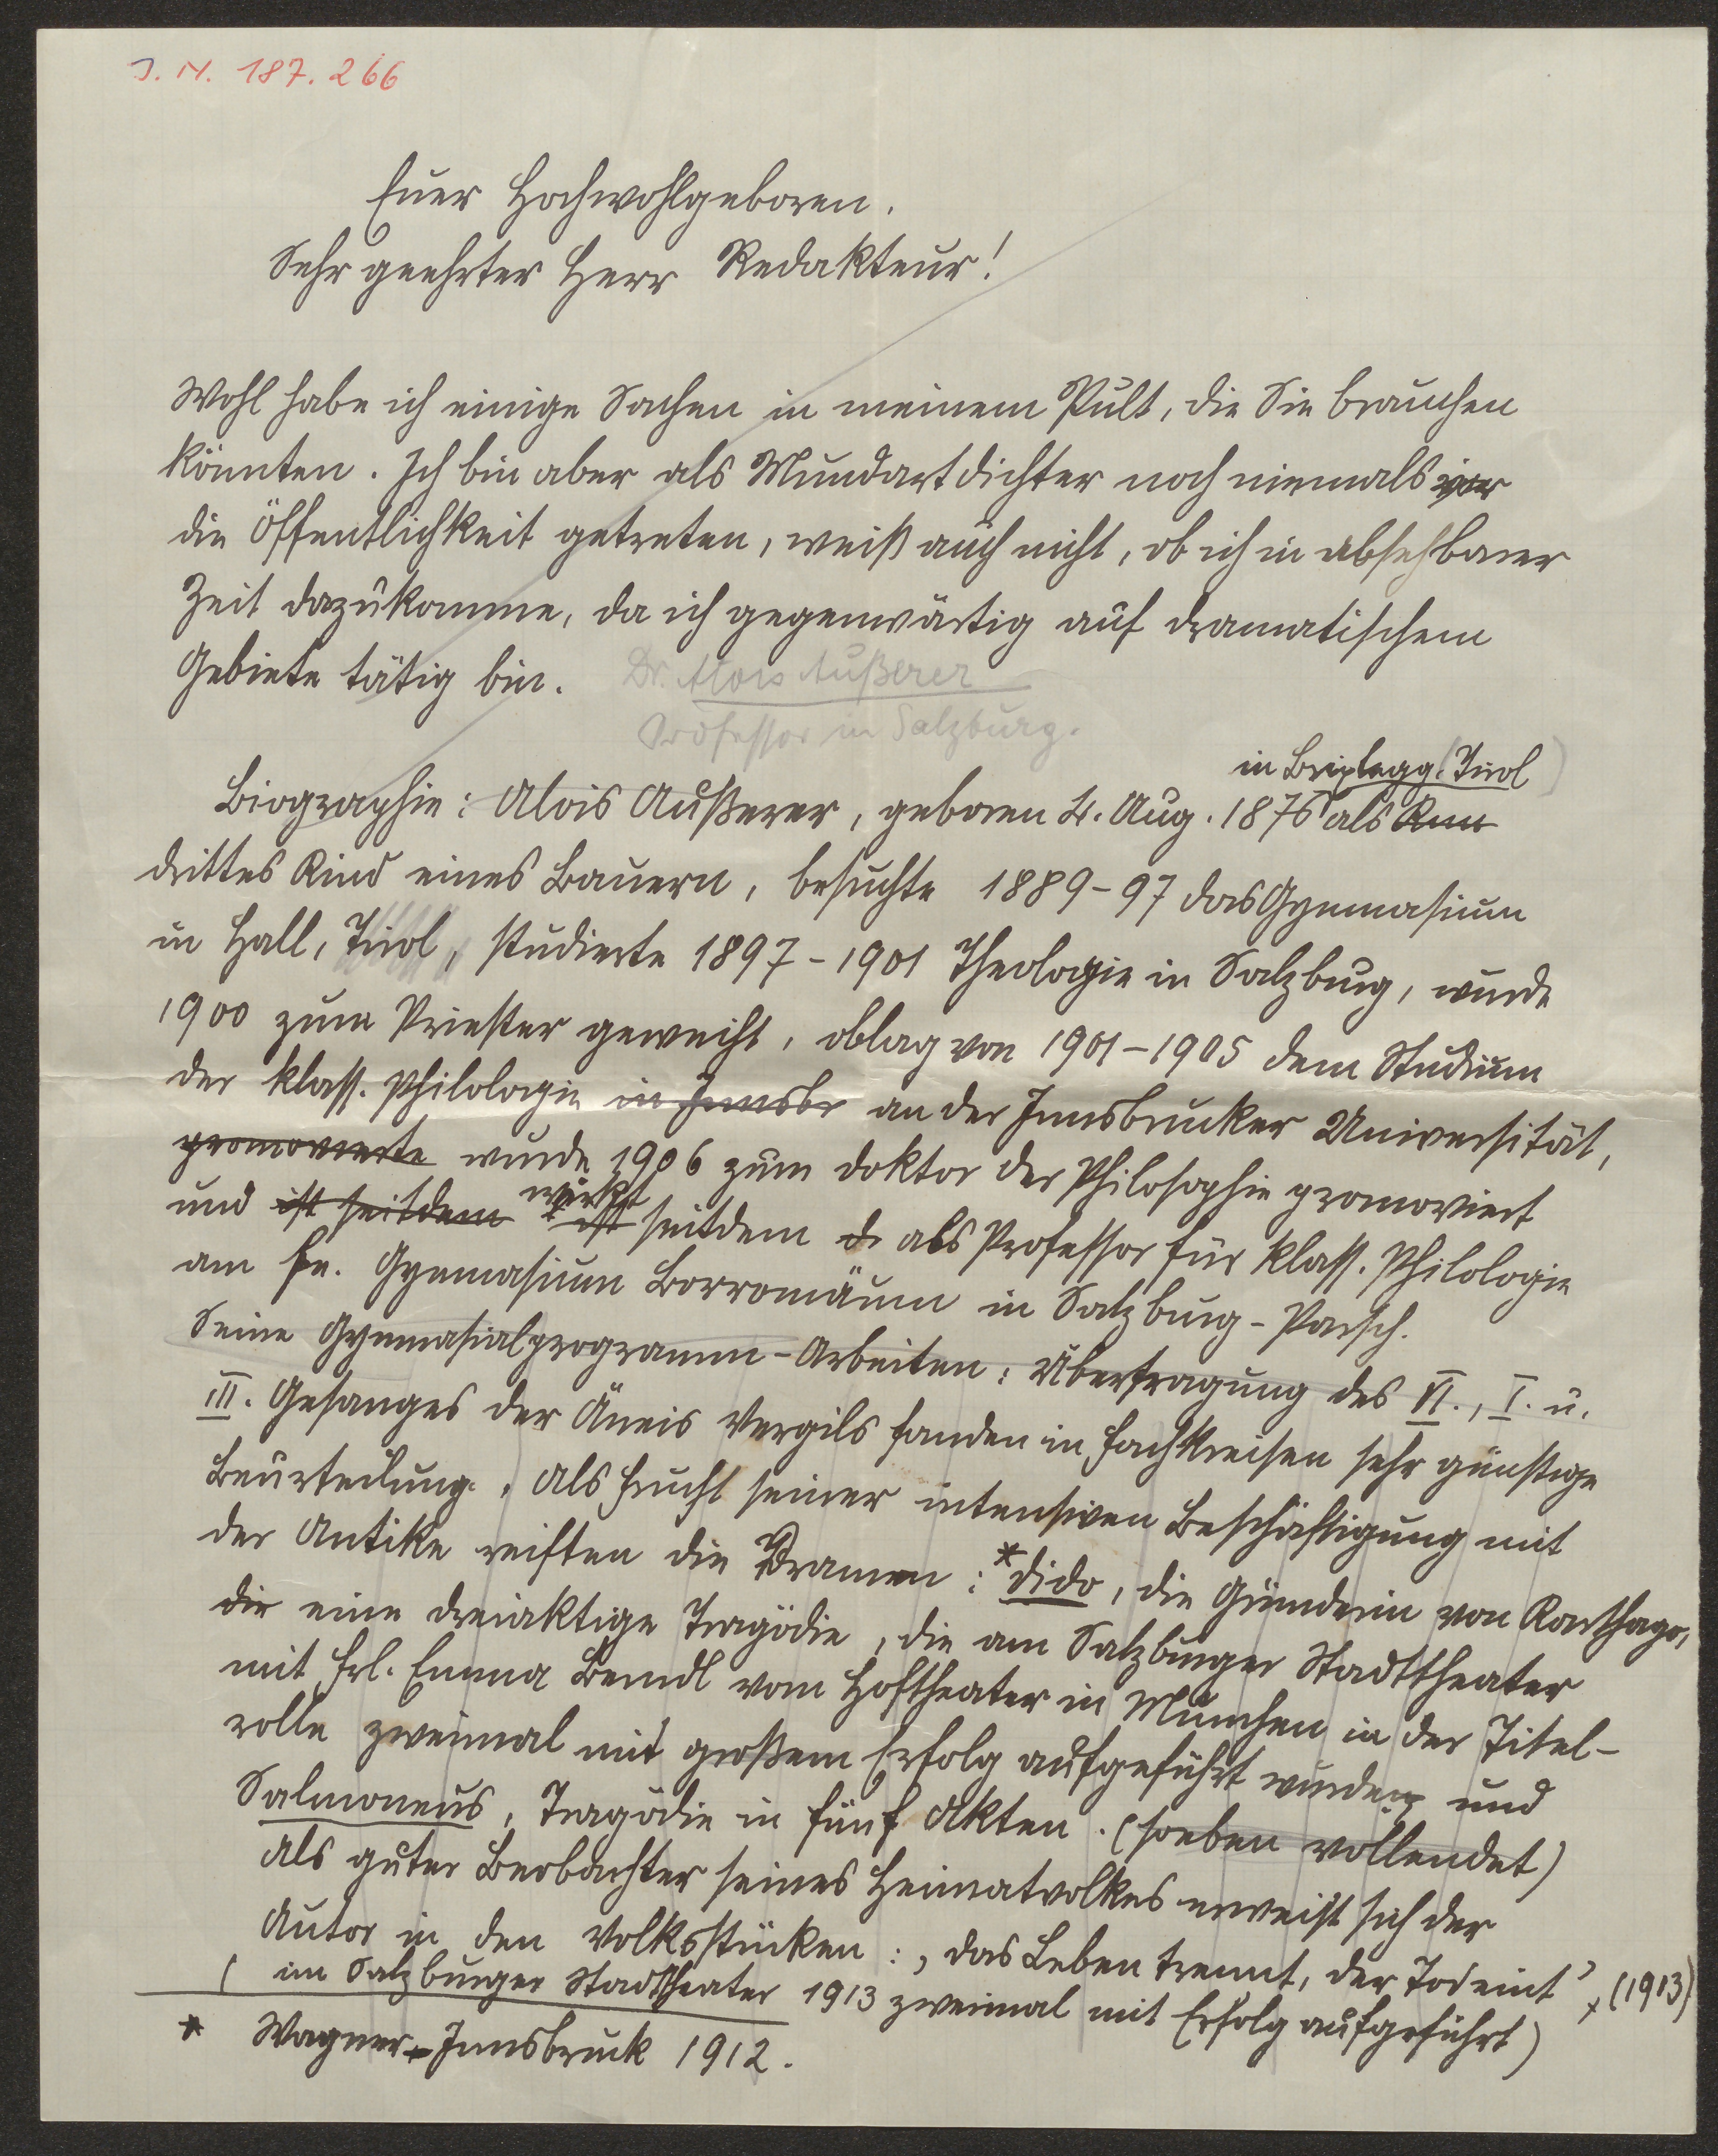 J. N. 187.266
Euer Hochwohlgeboren.
Sehr geehrter Herr Redakteur!
Wohl habe ich einige Sachen in meinem Pult, die Sie brauchen
könnten. Ich bin aber als Mundartdichter noch niemals vor
die Öffentlichkeit getreten, weiß auch nicht, ob ich in absehbarer
Zeit dazukomme, da ich gegenwärtig auf dramatischem
Gebiete tätig bin. Dr. Alois Außerer
Professor in Salzburg.
in Brixlegg (Tirol)
Biographie: Alois Außerer, geboren 4. Aug. 1876 als
drittes Kind eines Bauern, besuchte 1889-97 das Gymnasium
in Hall, Tirol, studierte 1897-1901 Theologie in Salzburg, wurde
1900 zum Priester geweiht, oblag von 1901-1905 dem Studium
der klass. Philologie in Innsbr an der Innsbrucker Universität,
promovierte wurde 1906 zum Doktor der Philosophie promoviert
wirkt
und ist seitdem ist seitdem d. als Professor für klass. Philologie
am fe. Gymnasium Borromäum in Salzburg-Parsch.
Seine Gymnasialprogramm-Arbeiten: Übertragung des VI., I. u.
III. Gesanges der Äneis Vergils fanden in Fachkreisen sehr günstige
Beurteilung. Als Frucht seiner intensiven Beschäftigung mit
der Antike reiften die Dramen: *Dido, die Gründerin von Karthago,
die eine dreiaktige Tragödie, die am Salzburger Stadttheater
mit Frl. Emma Berndl vom Hoftheater in München in der Titel-
rolle zweimal mit großem Erfolg aufgeführt wurde, und
Salmoneus, Tragödie in fünf Akten. (soeben vollendet)
Als guter Beobachter seines Heimatvolkes erweist sich der
Autor in den Volksstücken: ‚Das Leben trennt, der Tod eint', (1913)
(im Salzburger Stadttheater 1913 zweimal mit Erfolg aufgeführt)
* Wagner-Innsbruck 1912.